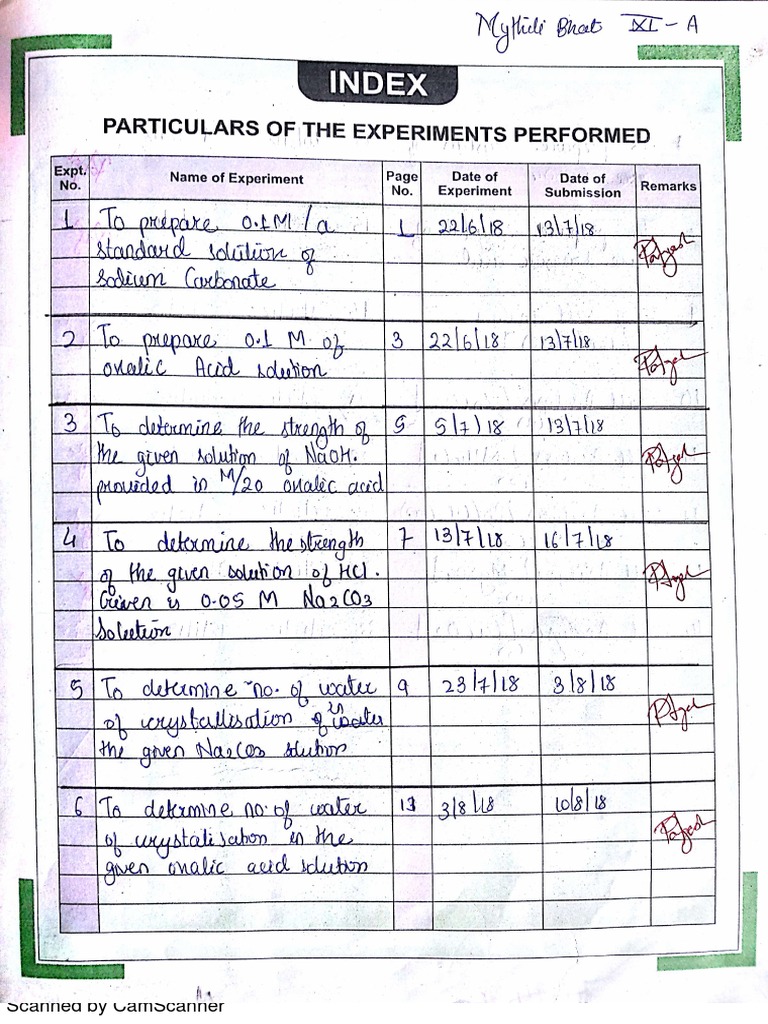 Mythili Bhat XI - A
INDEX
PARTICULARS OF THE EXPERIMENTS PERFORMED
Expt. No. Name of Experiment Page No. Date of Experiment Date of Submission Remarks
1 To prepare 0.1M / a 1 22/6/18 13/7/18
standard solution of
Sodium Carbonate
2 To prepare 0.1 M of 3 22/6/18 13/7/18
oxalic Acid solution
3 To determine the strength of 5 5/7/18 13/7/18
the given solution of NaOH.
provided in M/20 oxalic acid
4 To determine the strength 7 13/7/18 16/7/18
of the given solution of HCl.
Given is 0.05 M Na2CO3
Solution
5 To determine no. of water 9 23/7/18 3/8/18
of crystallisation in
the given Na2CO3 solution
6 To determine no. of water 13 3/8/18 10/8/18
of crystalisation in the
given oxalic acid solution
Scanned by CamScanner